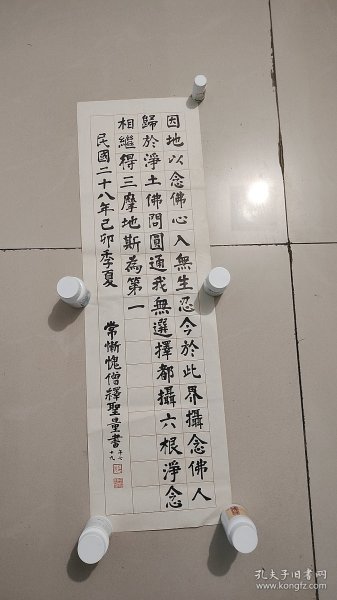 因地以念佛心入無生忍今於此界攝念佛人
歸於淨土佛問圓通我無選擇都攝六根淨念
相繼得三摩地斯為第一
民國二十八年己卯季夏
常慚愧僧釋聖量書
年七
十九
孔夫子旧书网